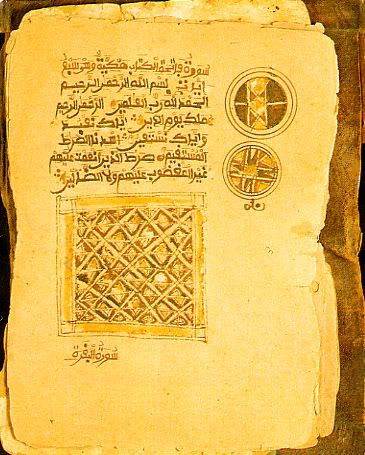 سورة فاتحة الكتاب مكية وهى سبع
ايات بسم الله الرحمن الرحيم
الحمد لله رب العلمين الرحمن الرحيم
ملك يوم الدين اياك نعبد
واياك نستعين اهدنا الصرط
المستقيم صرط الذين انعمت عليهم
غير المغضوب عليهم ولا الضالين
سورة البقرة